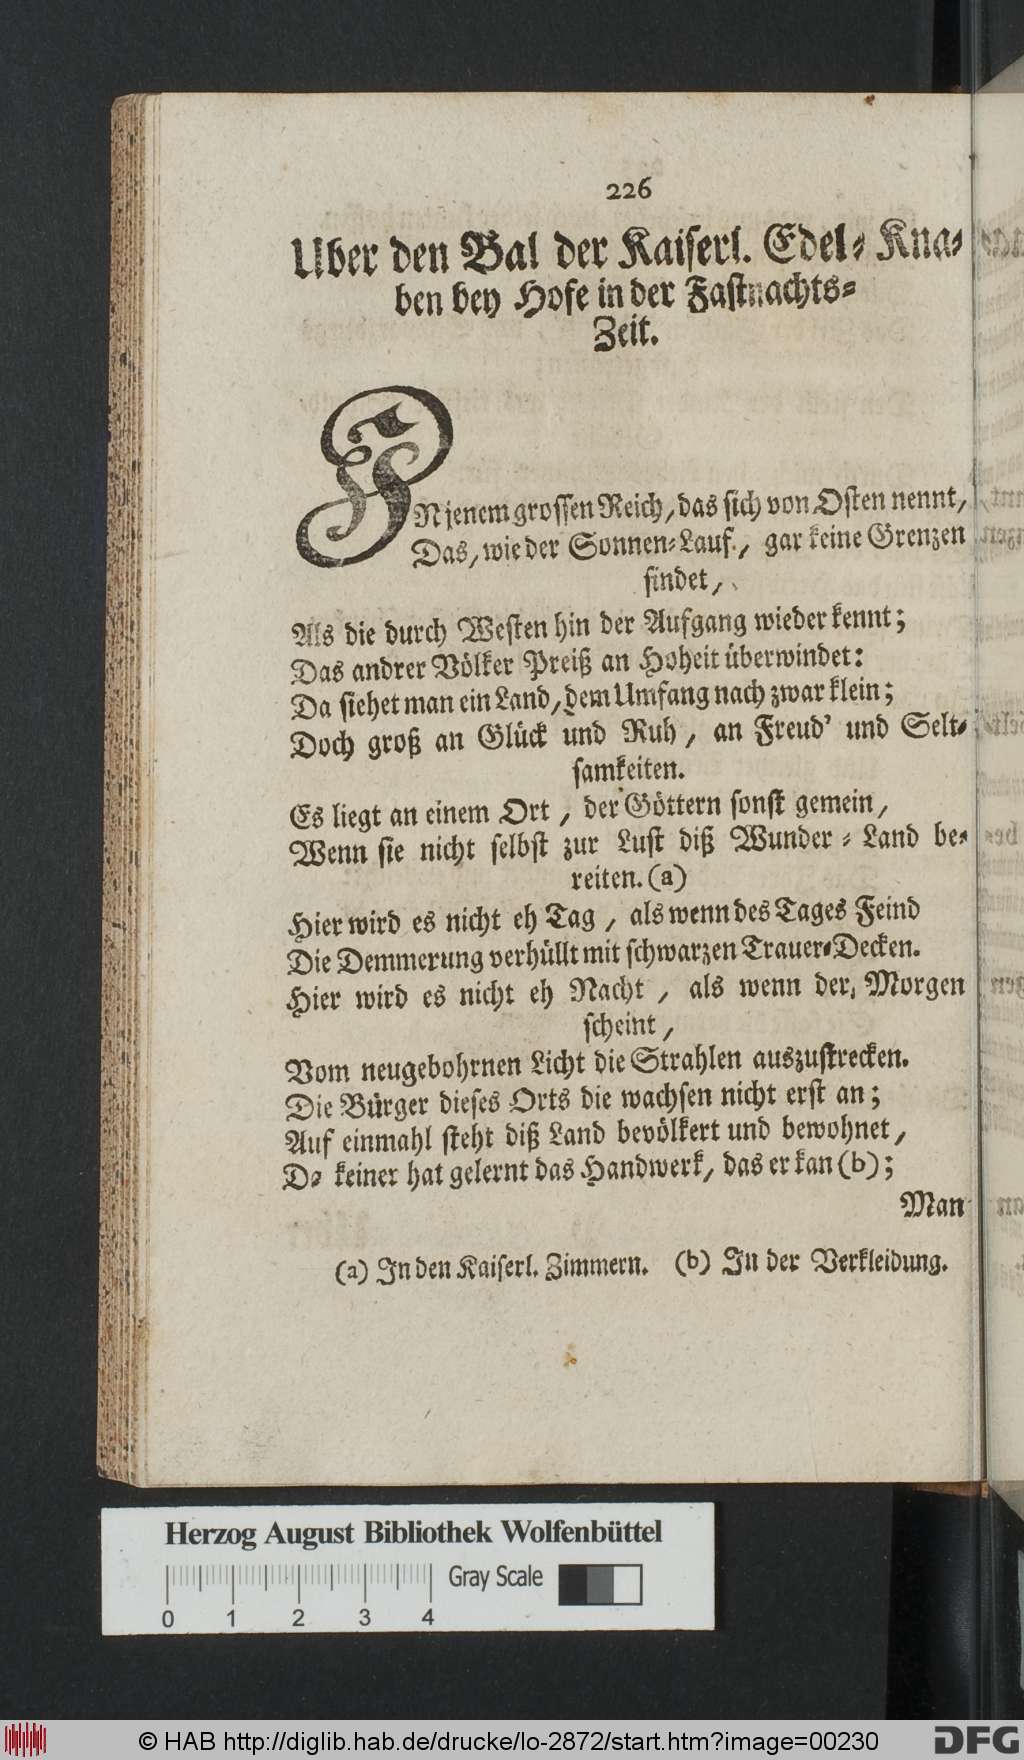 226
Uber den Bal der Kaiserl. Edel-Kna-
ben bey Hofe in der Fastnachts-
Zeit.
IN jenem grossen Reich, das sich von Osten nennt,
Das, wie der Sonnen-Lauf, gar keine Grenzen
findet,
Als die durch Westen hin der Aufgang wieder kennt;
Das andrer Völker Preiß an Hoheit überwindet:
Da siehet man ein Land, dem Umfang nach zwar klein;
Doch groß an Glück und Ruh, an Freud' und Selt-
samkeiten.
Es liegt an einem Ort, der Göttern sonst gemein,
Wenn sie nicht selbst zur Lust diß Wunder-Land be-
reiten. (a)
Hier wird es nicht eh Tag, als wenn des Tages Feind
Die Demmerung verhüllt mit schwarzen Trauer-Decken.
Hier wird es nicht eh Nacht, als wenn der Morgen
scheint,
Vom neugebohrnen Licht die Strahlen auszustrecken.
Die Bürger dieses Orts die wachsen nicht erst an;
Auf einmahl steht diß Land bevölkert und bewohnet,
Da keiner hat gelernt das Handwerk, das er kan (b);
Man
(a) In den Kaiserl. Zimmern. (b) In der Verkleidung.
Herzog August Bibliothek Wolfenbüttel
Gray Scale
0 1 2 3 4
© HAB http://diglib.hab.de/drucke/lo-2872/start.htm?image=00230
DFG